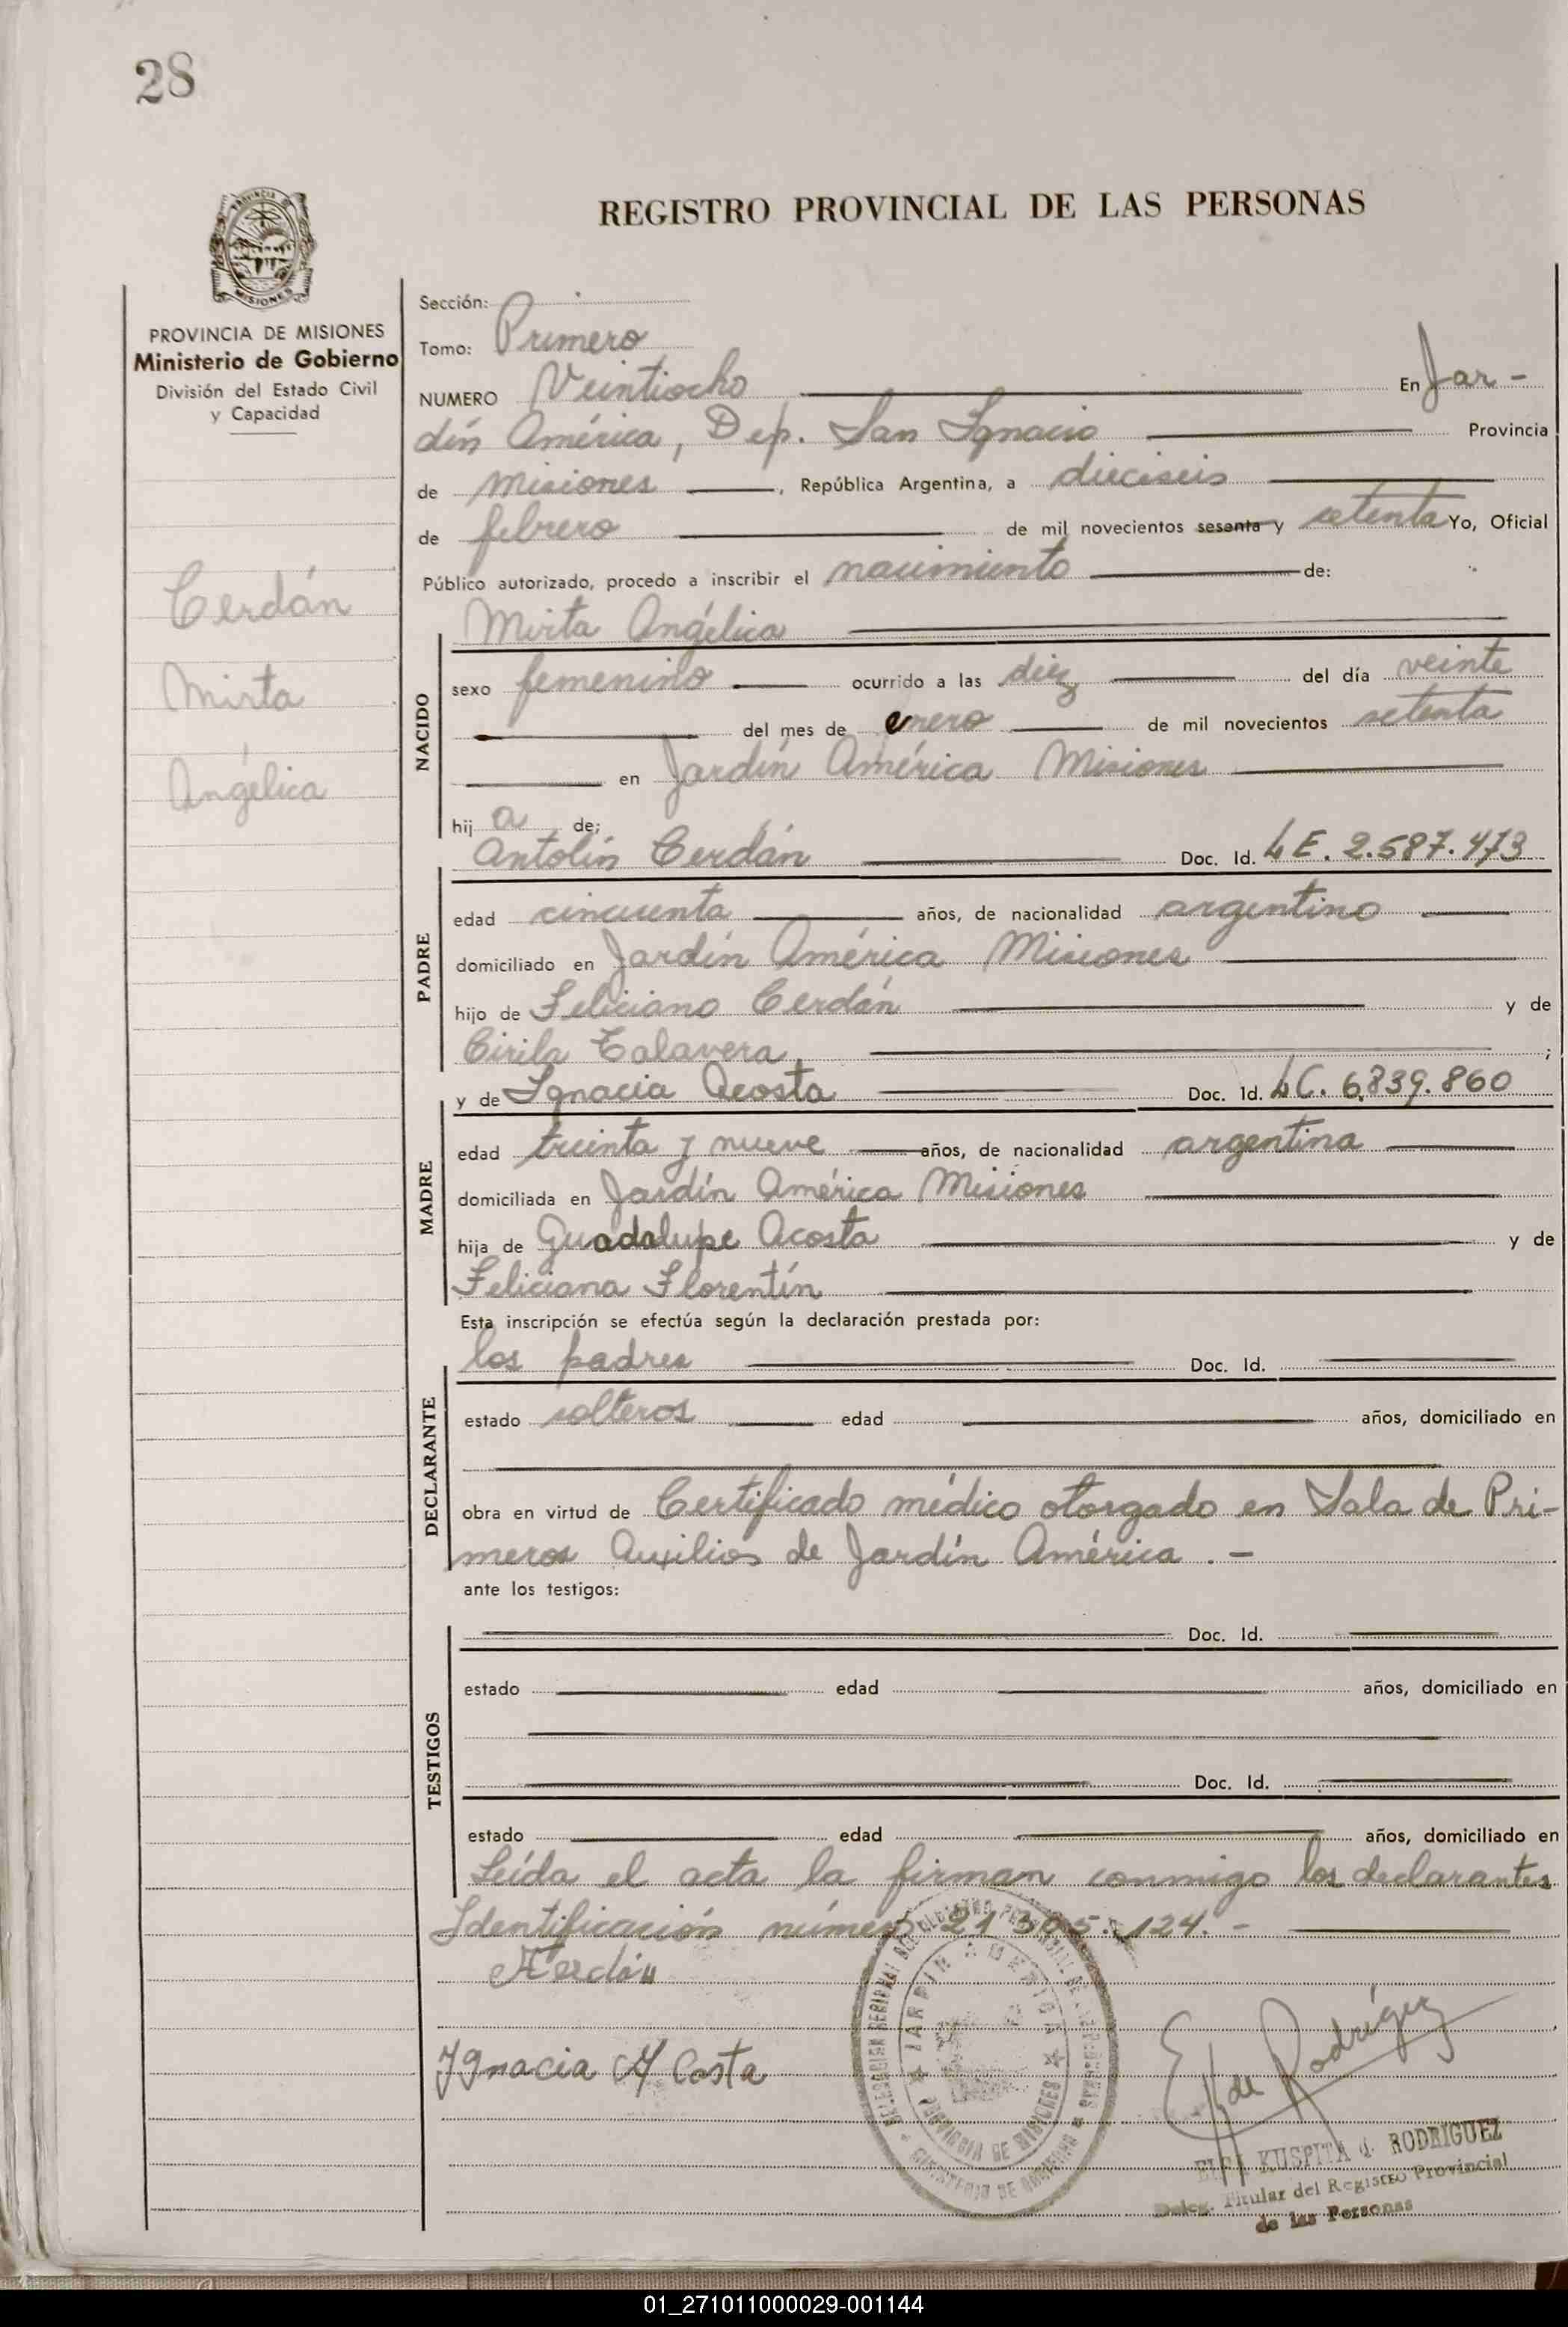 28
REGISTRO PROVINCIAL DE LAS PERSONAS
PROVINCIA DE MISIONES
Ministerio de Gobierno
División del Estado Civil
y Capacidad
Cerdán
Mirta
Angélica
Sección:
Tomo: Primero
NUMERO Veintiocho En Jar-
dín América, Dep. San Ignacio Provincia
de Misiones, República Argentina, a dieciseis
de febrero de mil novecientos sesenta y setenta Yo, Oficial
Público autorizado, procedo a inscribir el nacimiento de:
Mirta Angélica
NACIDO
sexo femenino ocurrido a las diez del día veinte
del mes de enero de mil novecientos setenta
en Jardín América Misiones
hij a de;
Antolín Cerdán Doc. Id. LE. 2.587.473
PADRE
edad cincuenta años, de nacionalidad argentino
domiciliado en Jardín América Misiones
hijo de Feliciano Cerdán y de
Cirila Talavera ;
y de Ignacia Acosta Doc. Id. LC. 6.839.860
MADRE
edad treinta y nueve años, de nacionalidad argentina
domiciliada en Jardín América Misiones
hija de Guadalupe Acosta y de
Feliciana Florentín
Esta inscripción se efectúa según la declaración prestada por:
los padres Doc. Id.
DECLARANTE
estado solteros edad años, domiciliado en
obra en virtud de Certificado médico otorgado en Sala de Pri-
meros Auxilios de Jardín América.-
ante los testigos:
Doc. Id.
TESTIGOS
estado edad años, domiciliado en
Doc. Id.
estado edad años, domiciliado en
Leída el acta la firman conmigo los declarantes
Identificación número 21.305.124.-
Ignacia A Costa
JARDIN AMERICA
PROVINCIA DE MISIONES
MINISTERIO DE GOBIERNO
E K de Rodríguez
KUSPITA d. RODRIGUEZ
Deleg. Titular del Registro Provincial
de las Personas
01_271011000029-001144